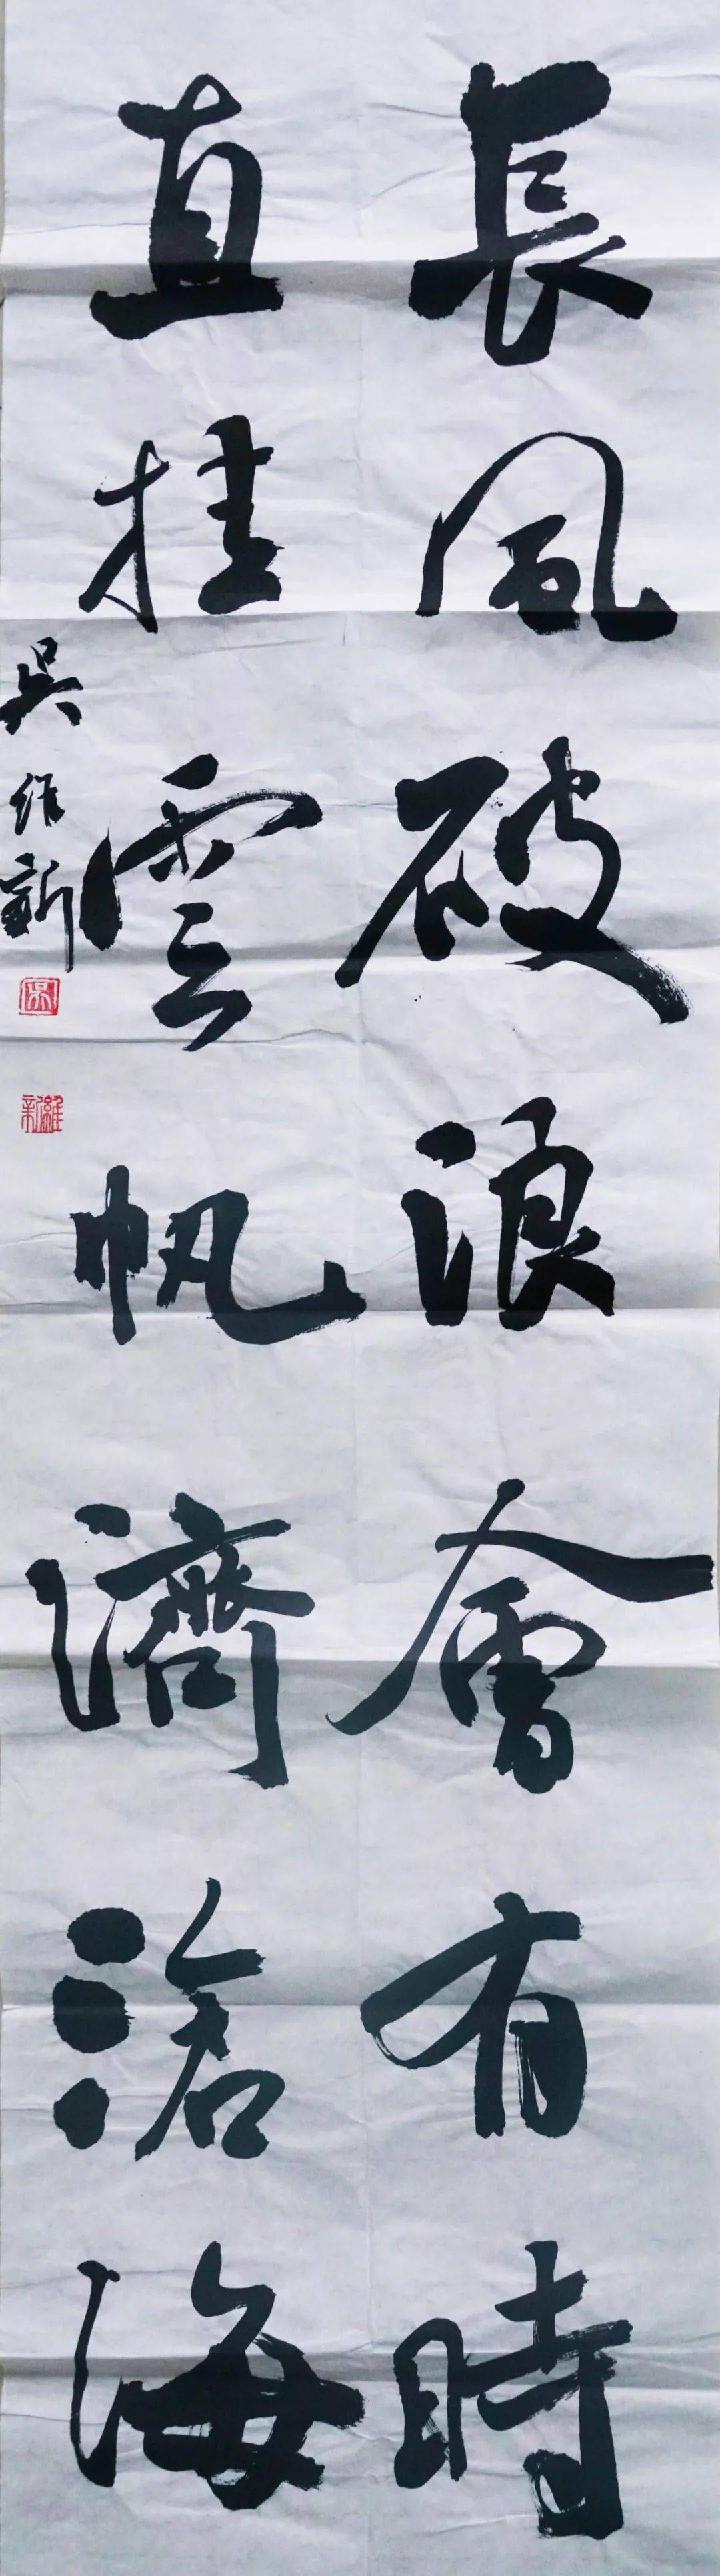 長風破浪會有時
直挂雲帆濟滄海
吳維新
吳
維新